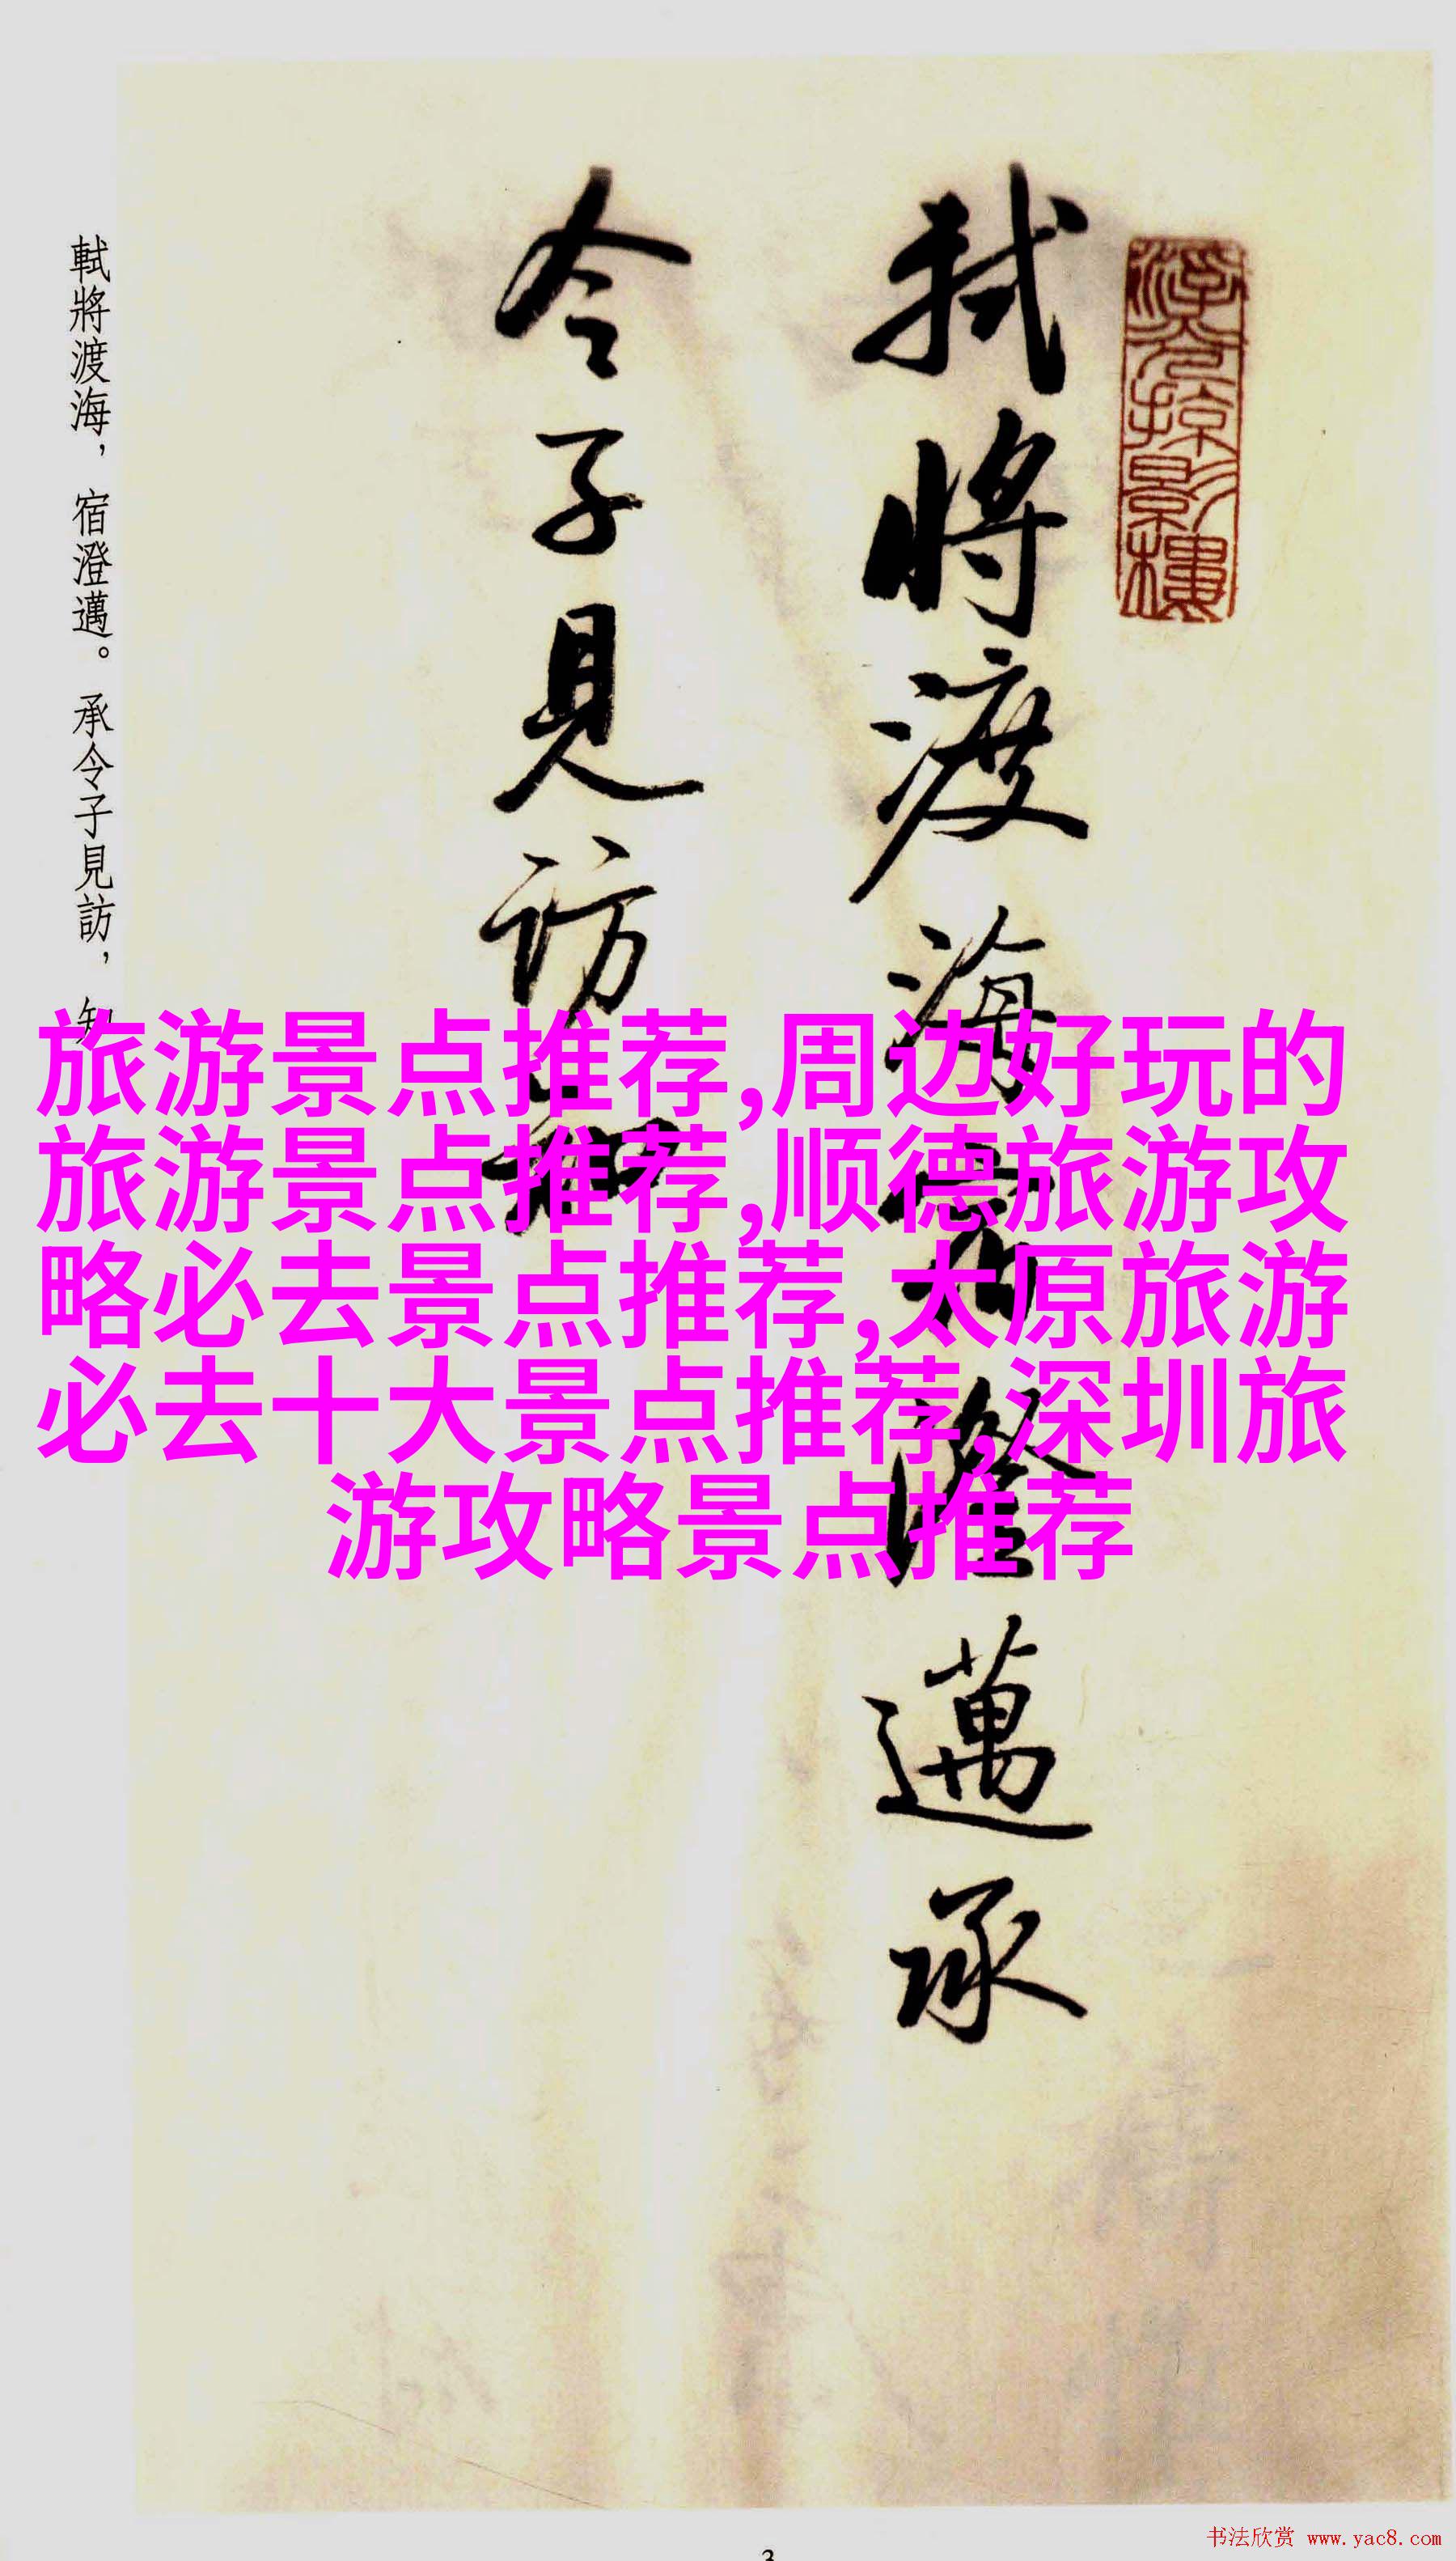 軾將渡海宿澄邁承
令子見訪知
軾將渡海，宿澄邁。承令子見訪，知
旅游景点推荐,周边好玩的
旅游景点推荐,顺德旅游攻
略必去景点推荐,太原旅游
必去十大景点推荐,深圳旅
游攻略景点推荐
书法欣赏 www.yac8.com
3